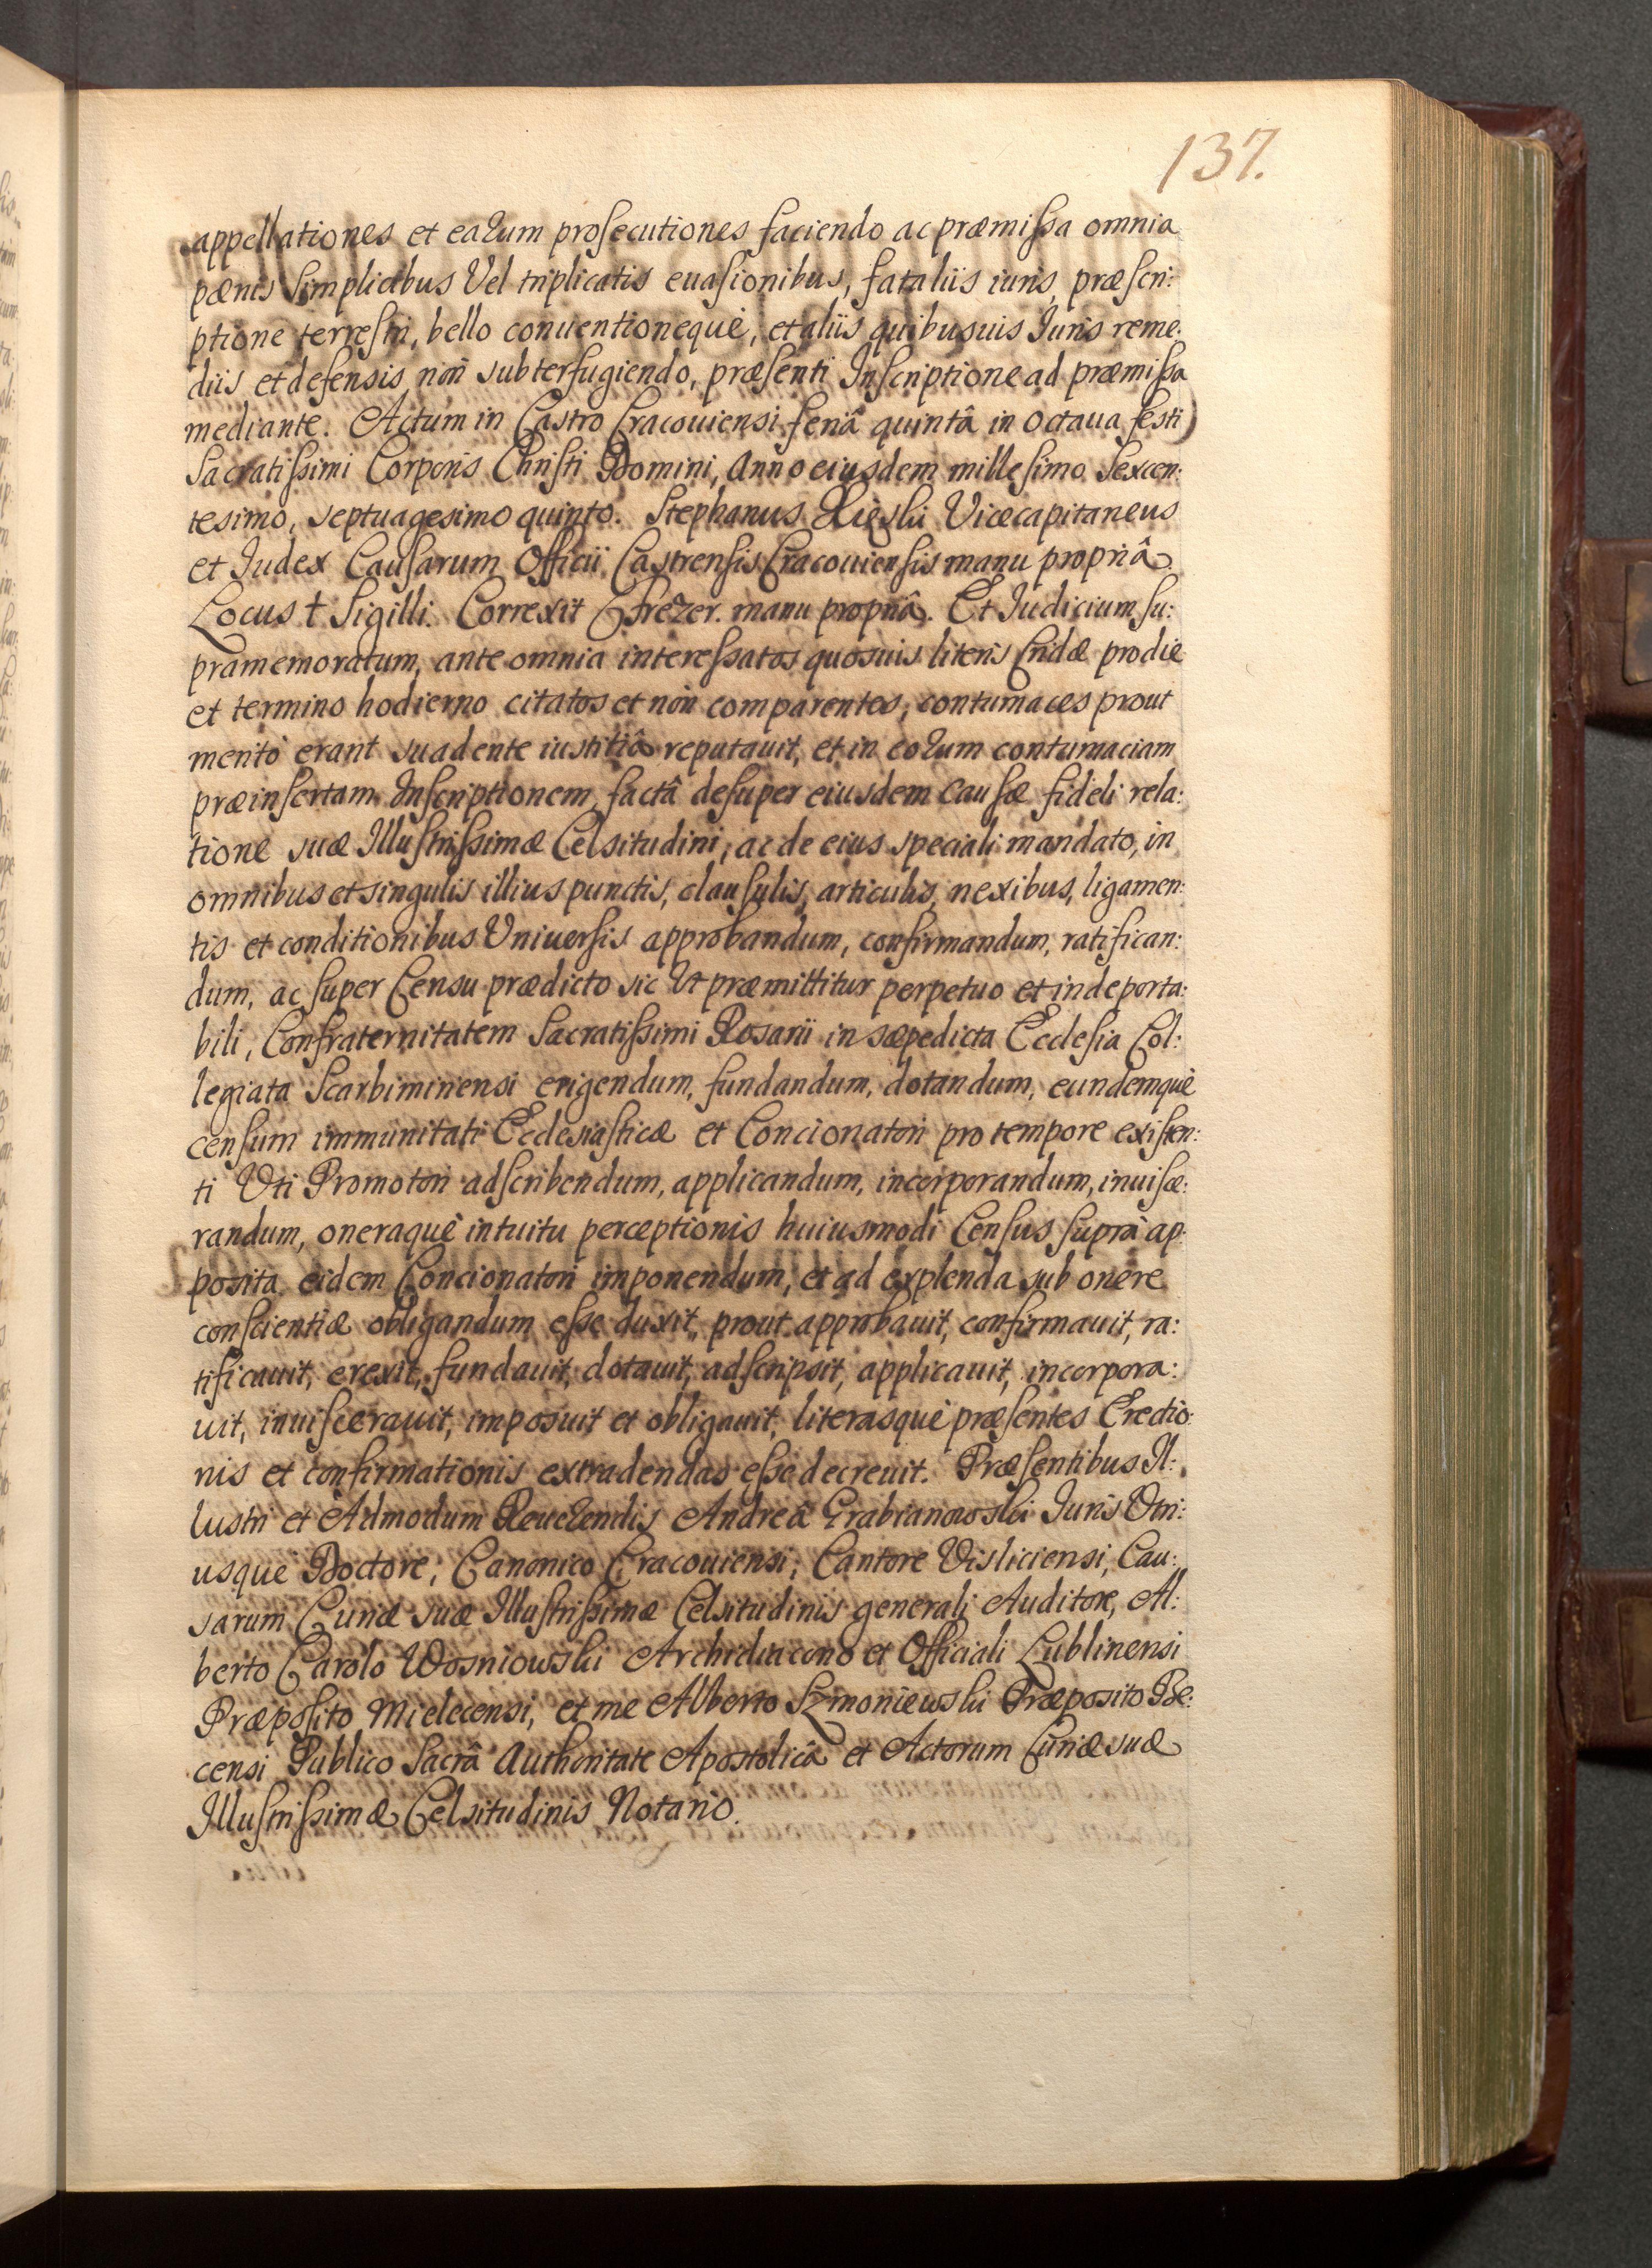 137.
appellationes et earum prosecutiones faciendo ac præmissa omnia
pænis simplicibus Vel triplicatis euasionibus, fataliis iuris, præscri:
ptione terrestri, bello conuentionequè, et aliis quibusuis Iuris reme:
diis et defensis nòn subterfugiendo, præsenti Inscriptione ad præmissa
mediante. Actum in Castro Cracouiensi feriâ quintâ in octaua festi
Sacratissimi Corporis Christi Domini, Anno eiusdem millesimo Sexcen:
tesimò, septuagesimo quinto. Stephanus Vicecapitaneus
et Iudex Causarum Officii Castrensis Cracouiensis manu propriâ.
Locus † Sigilli. Correxit Frezer. manu propriâ. Et Iudicium su:
pramemoratum, ante omnia interessatos quosuis literis Cridæ pro die
et termino hodierno citatos et nòn comparentes, contumaces prout
meritò erant suadente iustitiâ reputauit, et in eorum contumaciam
præinsertam Inscriptionem, factâ desuper eiusdem Causæ fideli rela:
tione suæ Illustrissimæ Celsitudini, ac de eius speciali mandato, in
omnibus et singulis illius punctis, clausulis, articulis, nexibus, ligamen:
tis et conditionibus Vniuersis approbandum, confirmandum, ratifican:
dum, ac super Censu prædicto sic Vt præmittitur perpetuo et indeporta:
bili, Confraternitatem Sacratissimi Rosarii in sæpedicta Ecclesia Col:
legiata Scarbiminensi erigendum, fundandum, dotandum, eundemquè
censum immunitati Ecclesiasticæ et Concionatori pro tempore existen:
ti Vti Promotori adscribendum, applicandum, incorporandum, inuisce:
randum, oneraquè intuitu perceptionis huiusmodi Census suprà ap:
posita eidem Concionatori imponendum, et ad explenda sub onere
conscientiæ obligandum esse duxit, prout approbauit, confirmauit, ra:
tificauit, erexit, fundauit, dotauit, adscripsit, applicauit, incorpora:
uit, inuiscerauit, imposuit et obligauit, literasquè præsentes Erectio:
nis et confirmationis extradendas esse decreuit. Præsentibus Il:
lustri et Admodum Reuerendis Andreâ Grabianowski Iuris Vtri:
usquè Doctore, Canonico Cracouiensi, Cantore Visliciensi, Cau:
sarum Curiæ suæ Illustrissimæ Celsitudinis generali Auditore, Al:
berto Carolo Wosniowski Archidiacono et Officiali Lublinensi
Præposito Mielecensi, et me Alberto Szmoniewski Præposito Be:
censi Publico Sacrâ Authoritate Apostolicâ et Actorum Curiæ suæ
Illustrissimæ Celsitudinis Notario.